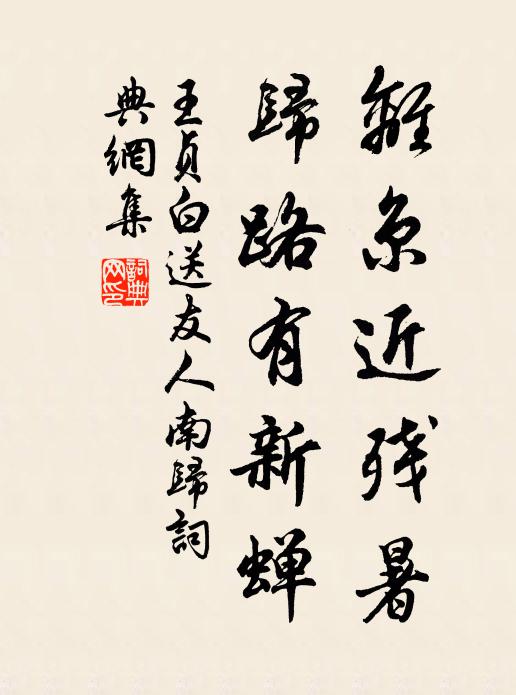 離京近残暑
歸路有新蝉
王貞白送友人南歸詞
典網集
詞典
网印